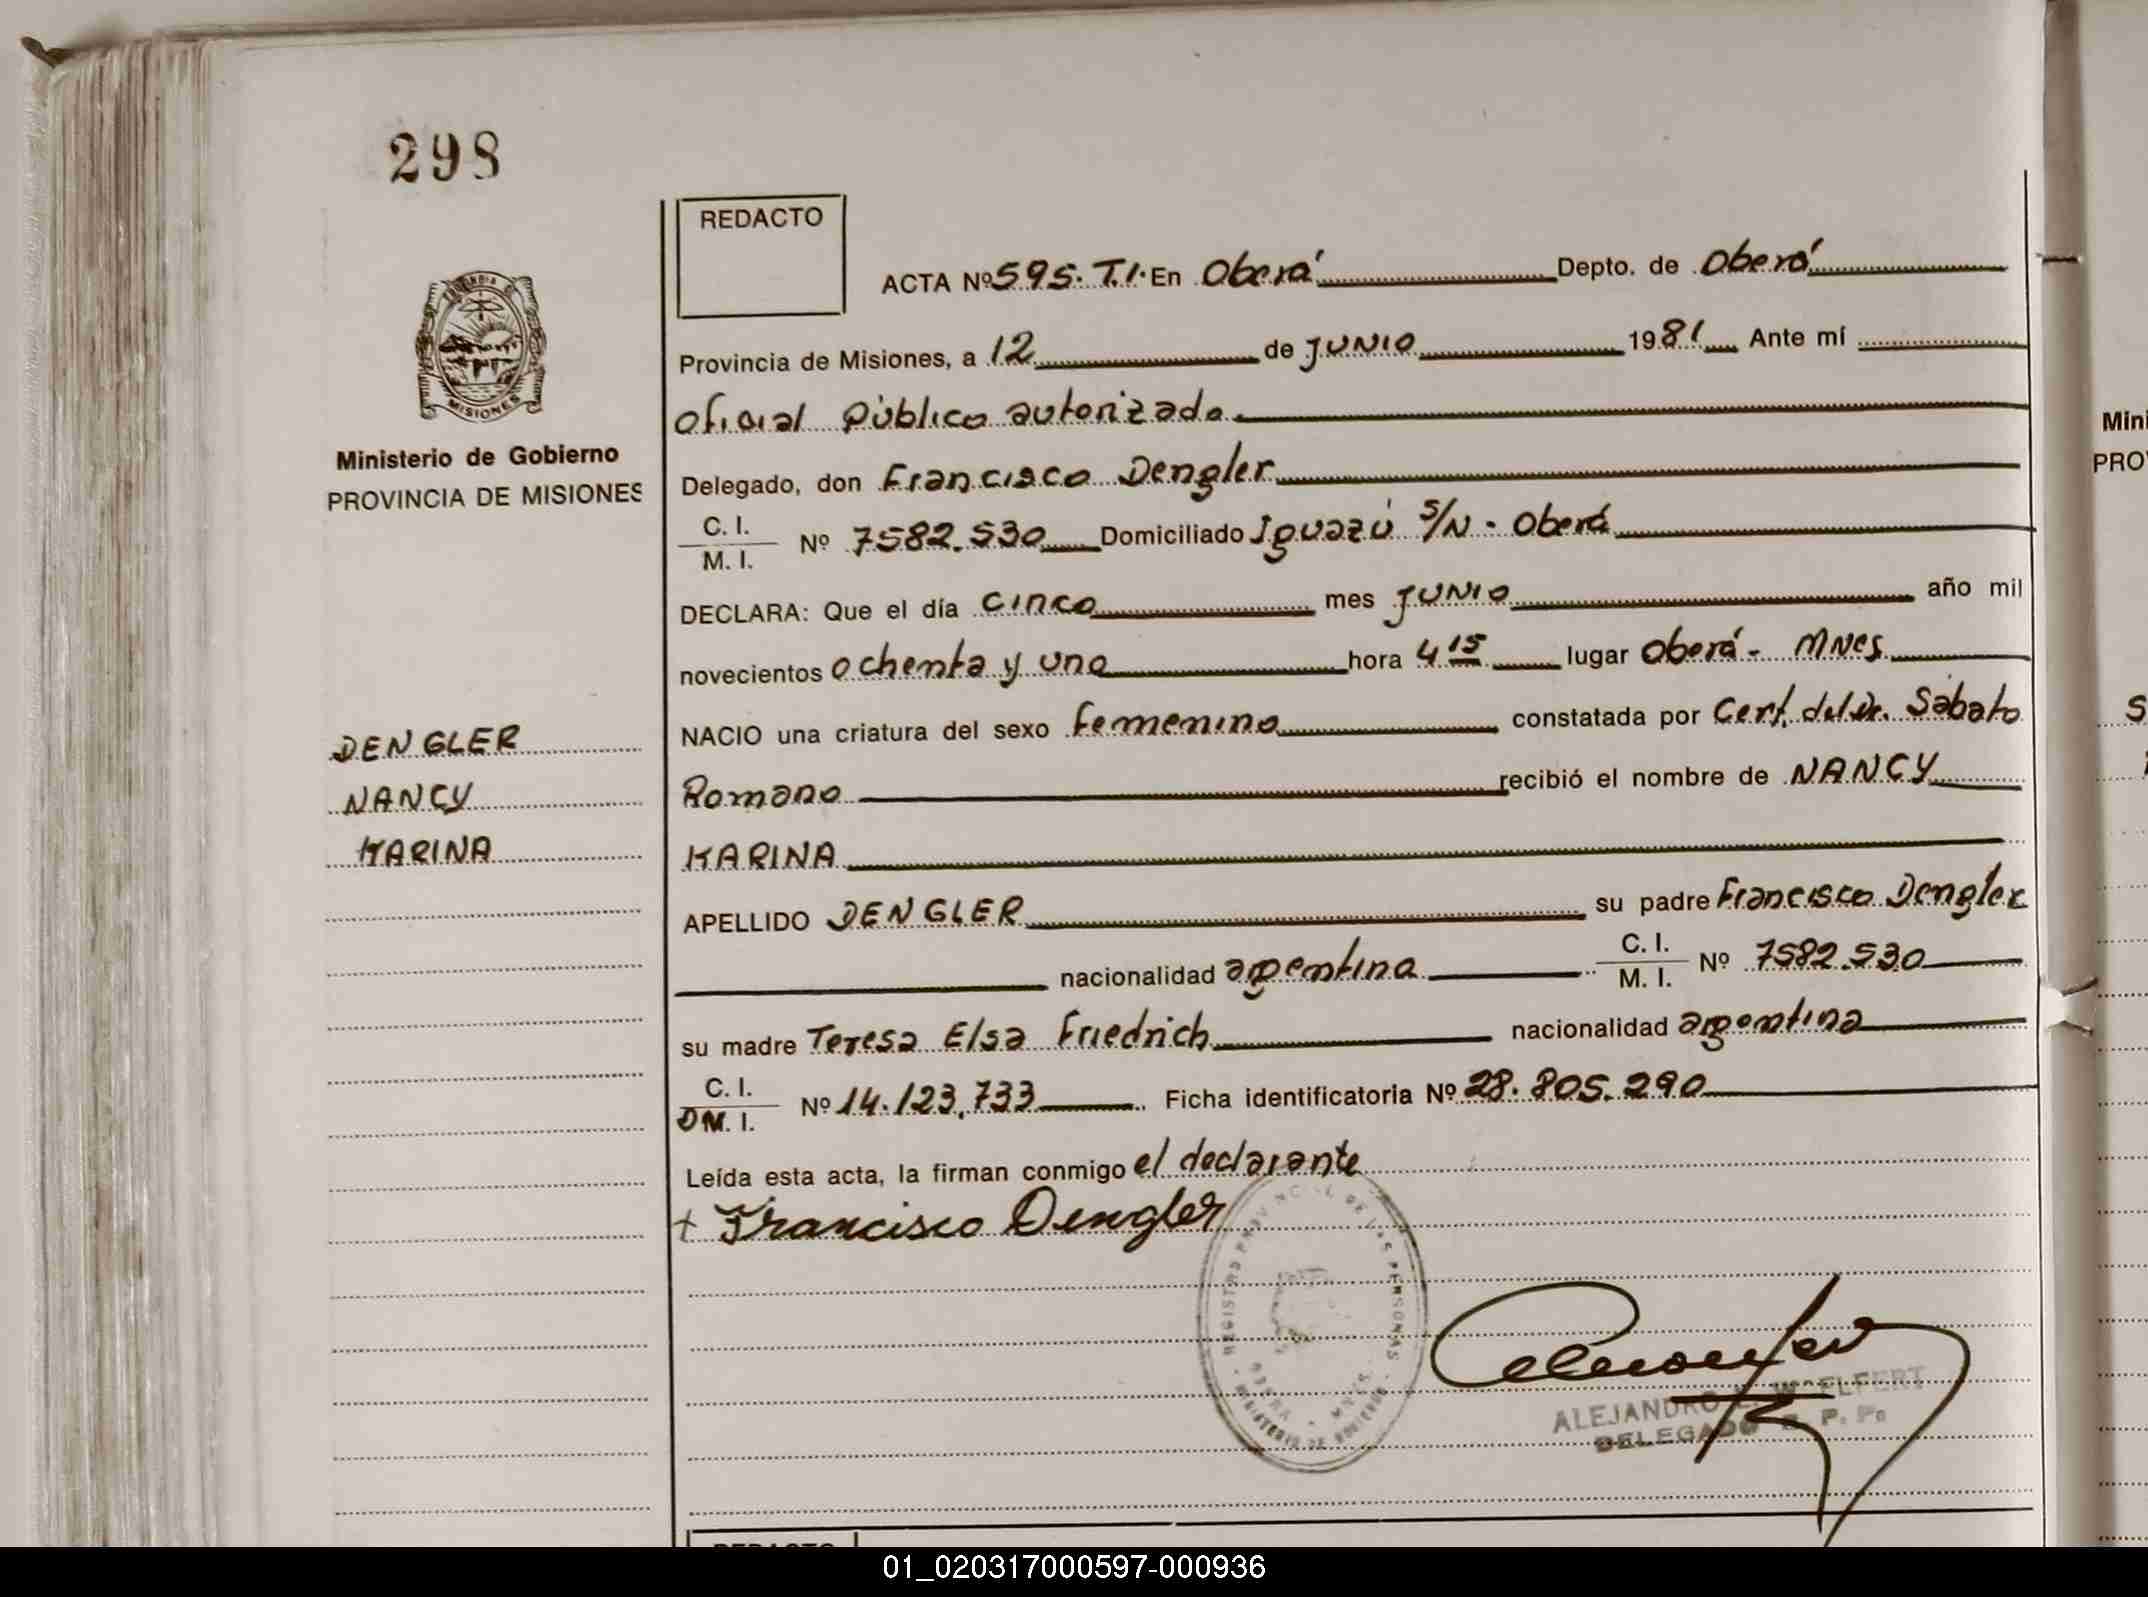 298
REDACTO
ACTA Nº 595. T.I. En Oberá Depto. de Oberá
Provincia de Misiones, a 12 de JUNIO 1981 Ante mí
Oficial Público autorizado
Ministerio de Gobierno
PROVINCIA DE MISIONES
MISIONES
Delegado, don Francisco Dengler
C. I.
M. I. Nº 7582.530 Domiciliado Iguazú S/N - Oberá
DECLARA: Que el día cinco mes JUNIO año mil
novecientos ochenta y uno hora 4 15 lugar Oberá - Mnes
DENGLER
NANCY
KARINA
NACIO una criatura del sexo femenino constatada por Cert. del Dr. Sábato
Romano recibió el nombre de NANCY
KARINA
APELLIDO DENGLER su padre Francisco Dengler
nacionalidad argentina C. I.
M. I. Nº 7582.530
su madre Teresa Elsa Friedrich nacionalidad argentina
C. I.
DM. I. Nº 14.123.733 Ficha identificatoria Nº 28.805.290
Leída esta acta, la firman conmigo el declarante
+ Francisco Dengler
REGISTRO PROVINCIAL DE LAS PERSONAS
OBERA MNES.
MINISTERIO DE GOBIERNO
ALEJANDRO WOELFERT
DELEGADO R. P. P.
REDACTO
Mini
PRO
S
01_020317000597-000936